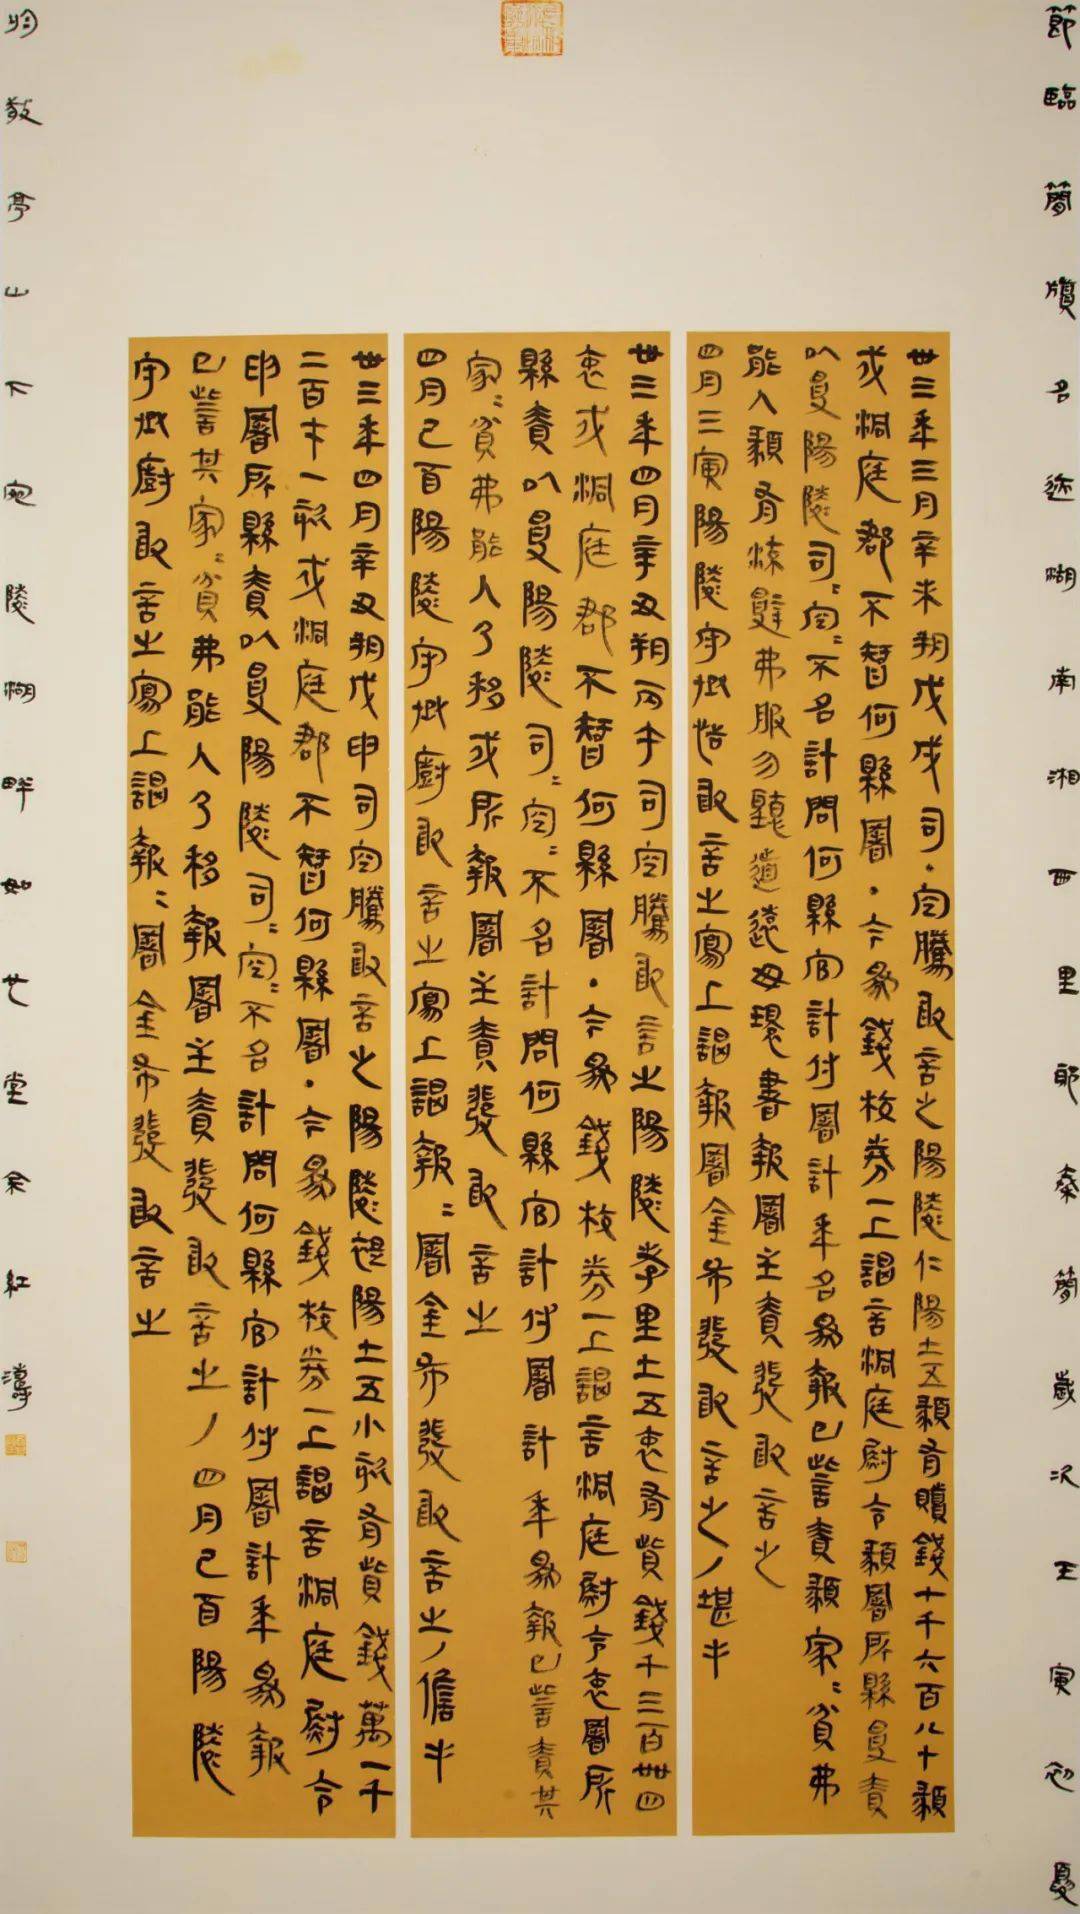 節臨簡牘名迹湖南湘西里耶秦簡歲次壬寅初夏
卅三年三月辛未朔戊戌司·空騰敢言之陽陵仁陽士五𩔨有贖錢七千六百八十𩔨
戍洞庭郡不智何縣署·今為錢校券一上謁言洞庭尉令𩔨署所縣受責
以受陽陵司=空=不名計問何縣官計付署計年名為報已訾責𩔨家=貧弗
能入𩔨有流辤弗服勿聽道遠毋環書報署主責發敢言之
四月壬寅陽陵守丞恬敢言之寫上謁報署金布發敢言之/堪手
卅三年四月辛丑朔丙午司空騰敢言之陽陵孝里士五衷有貲錢千三百卌四
衷戍洞庭郡不智何縣署·今為錢校券一上謁言洞庭尉令衷署所
縣責以受陽陵司=空=不名計問何縣官計付署計年為報已訾責其
家=貧弗能入乃移戍所報署主責發敢言之
四月己酉陽陵守丞廚敢言之寫上謁報=署金布發敢言之/儋手
卅三年四月辛丑朔戊申司空騰敢言之陽陵褆陽士五小欬有貲錢萬一千
二百一欬戍洞庭郡不智何縣署·今為錢校券一上謁言洞庭尉令
申署所縣責以受陽陵司=空=不名計問何縣官計付署計年為報
已訾其家=貧弗能入乃移報署主責發敢言之/四月己酉陽陵
守丞廚敢言之寫上謁報=署金布發敢言之
於敬亭山下宛陵湖畔如堂余紅濤